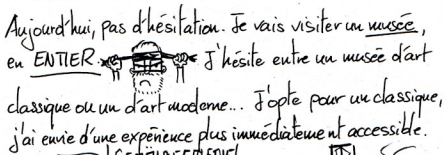 Aujourd'hui, pas d'hésitation. Je vais visiter un musée,
en ENTIER. J'hésite entre un musée d'art
classique ou un d'art moderne... J'opte pour un classique,
j'ai envie d'une expérience plus immédiatement accessible.